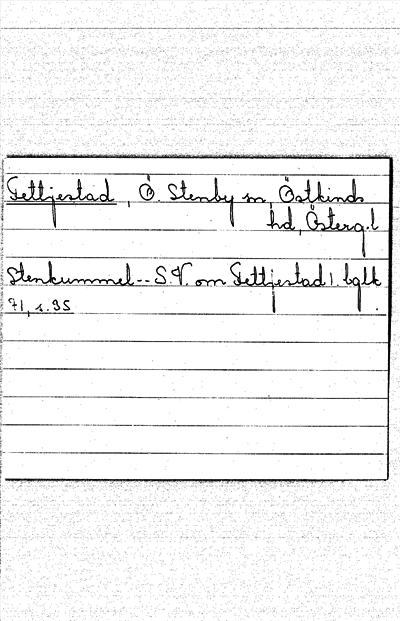 Fettjestad, Ö. Stenby sn, Östkinds
hd, Österg.l
Stenkummel -- S.V. om Fettjestad). bglk.
71, s. 35